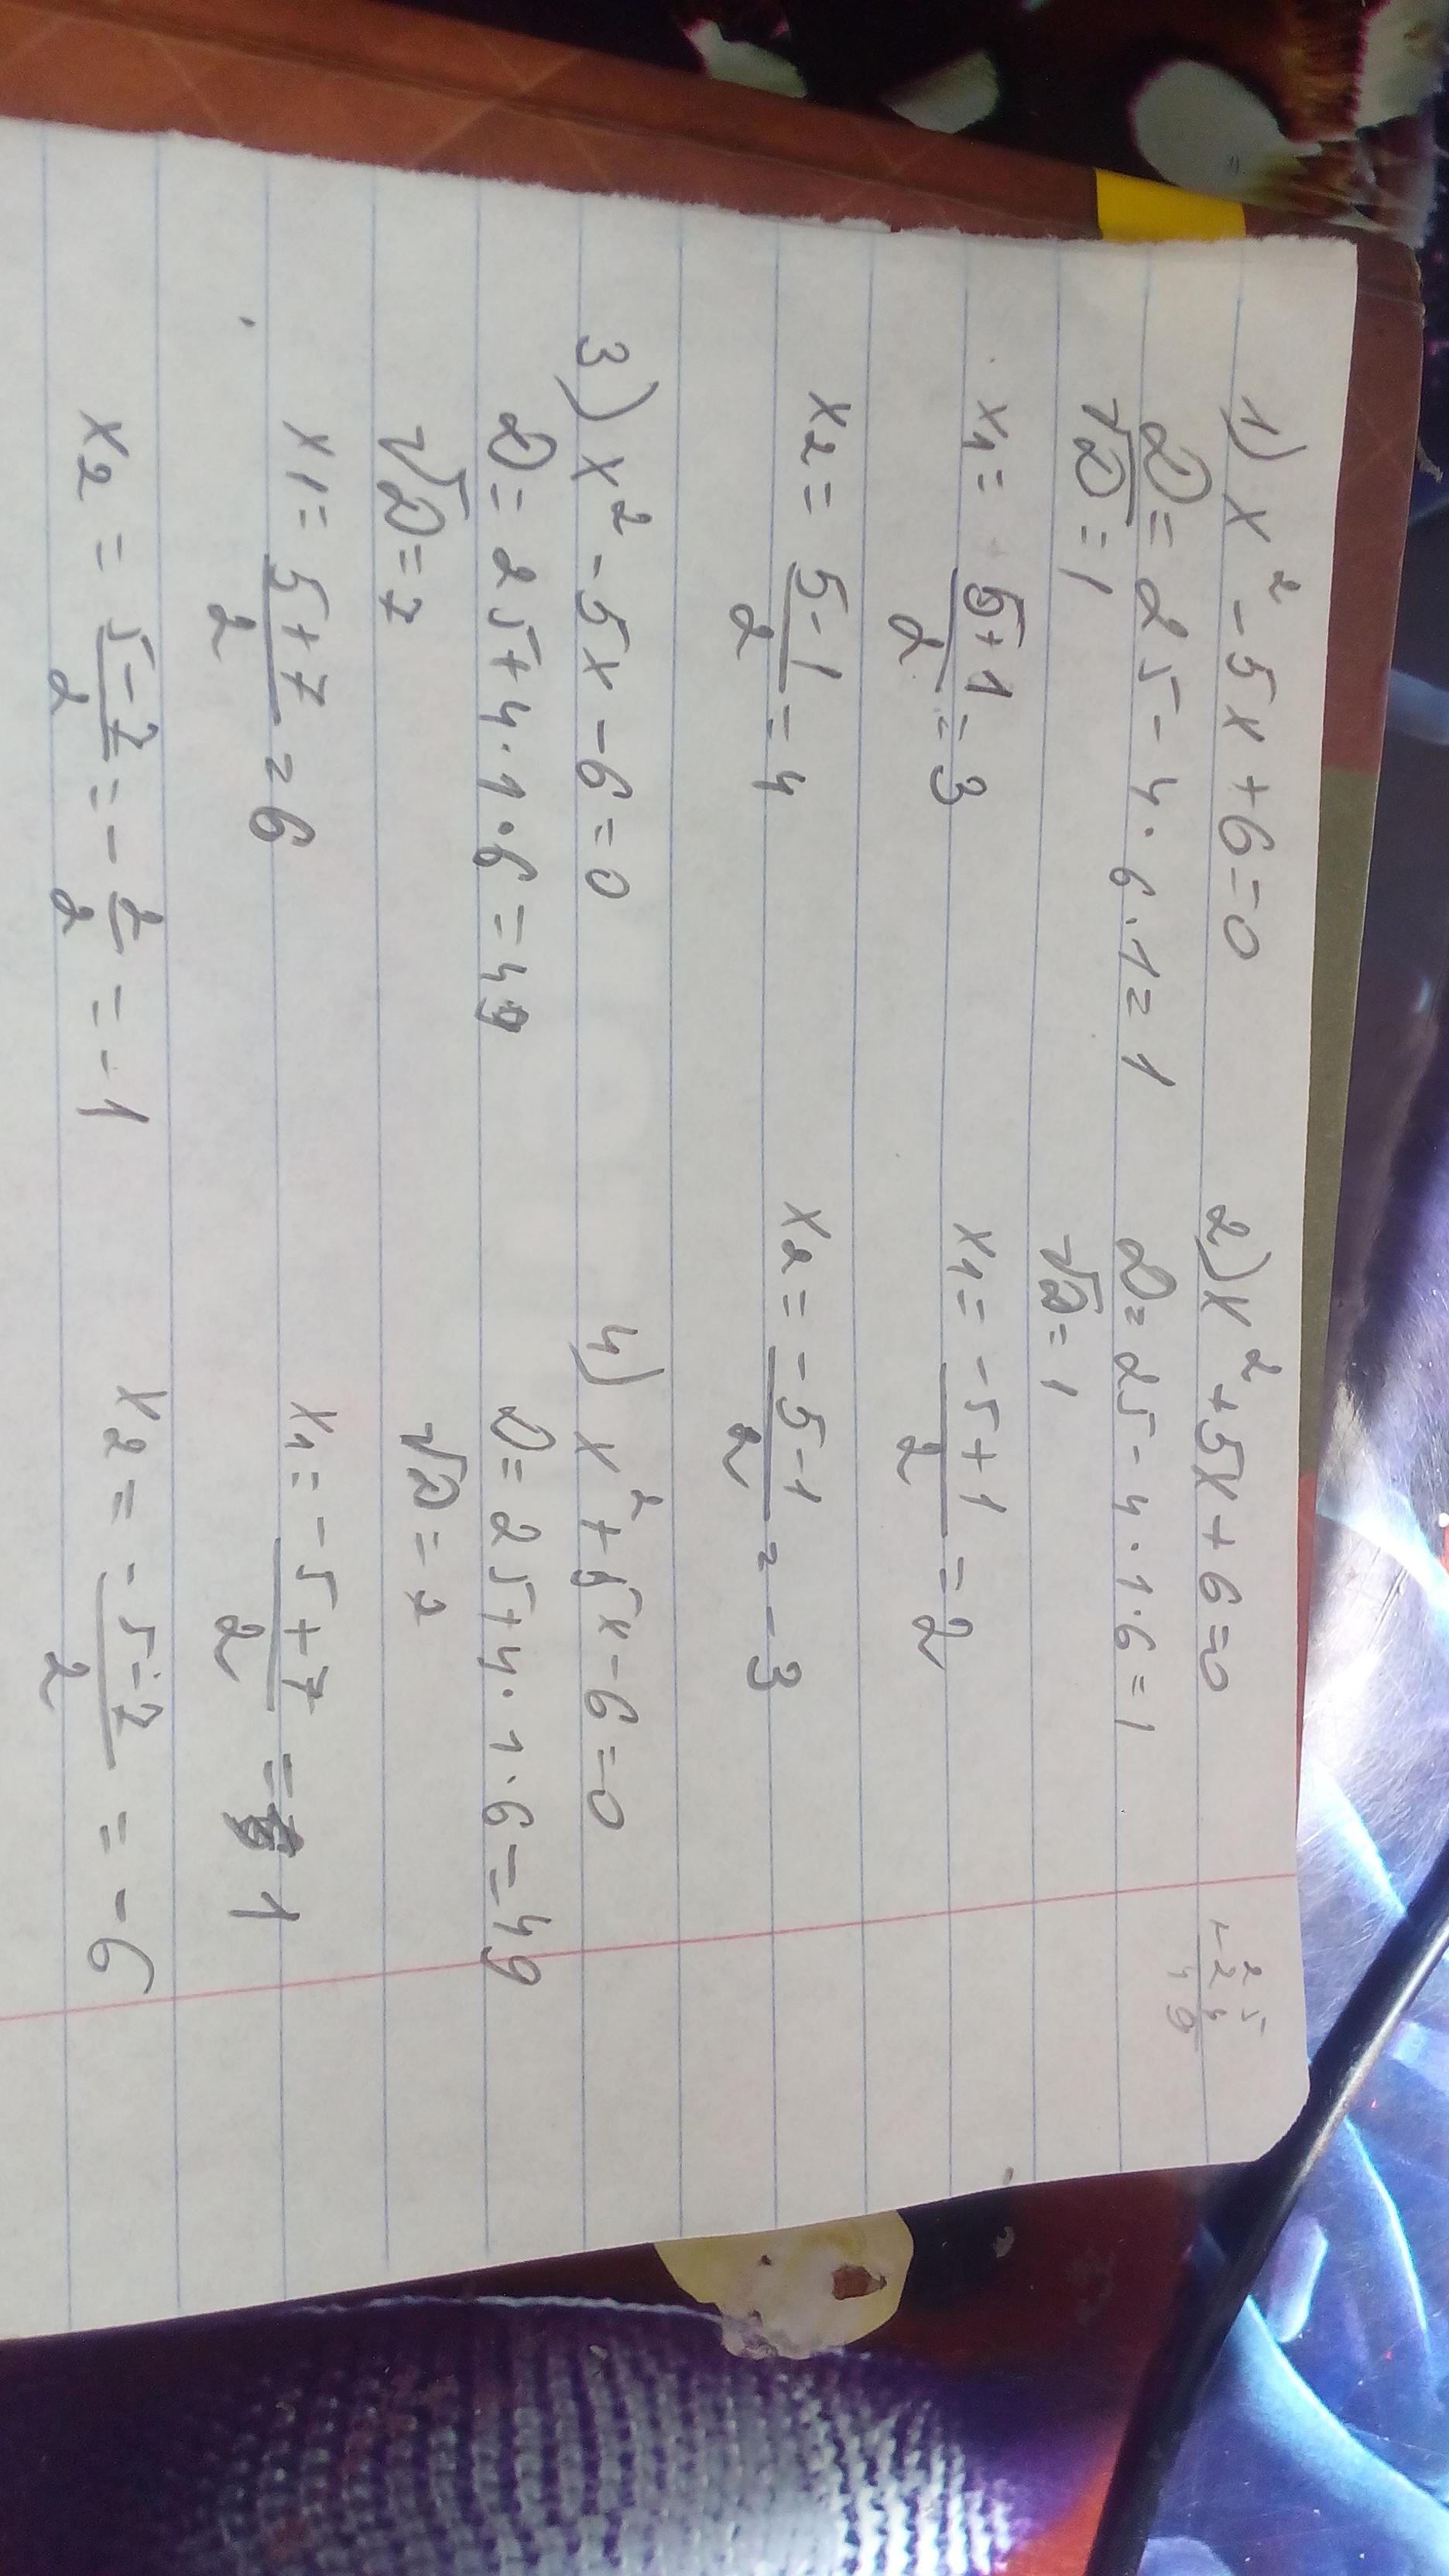 1) x² - 5x + 6 = 0
D = 25 - 4 · 6 · 1 = 1
√D = 1
x₁ = 5+1/2 = 3
x₂ = 5-1/2 = 4
2) x² + 5x + 6 = 0
D = 25 - 4 · 1 · 6 = 1
√D = 1
x₁ = -5+1/2 = 2
x₂ = -5-1/2 = -3
25
+24
49
3) x² - 5x - 6 = 0
D = 25 + 4 · 1 · 6 = 49
√D = 7
x₁ = 5+7/2 = 6
x₂ = 5-7/2 = -2/2 = -1
4) x² + 5x - 6 = 0
D = 25 + 4 · 1 · 6 = 49
√D = 7
x₁ = -5+7/2 = 1
x₂ = -5-7/2 = -6